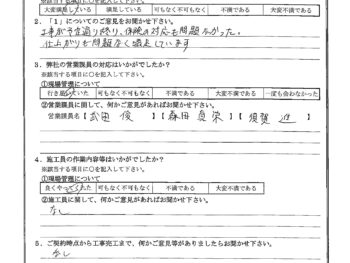 大変満足している 満足している 可もなく不可もなく 不満である 大変不満である
2. 「1」についてのご意見をお聞かせ下さい。
工事が予定通り終り、保険の対応も問題なかった。
仕上がりも問題なく満足しています
3. 弊社の営業職員の対応はいかがでしたか?
※該当する項目に○を記入して下さい。
①現場管理について
行き届いていた 可もなく不可もなく 不満である 大変不満である 一度も合わなかった
②営業職員に関して、何かご意見があればお聞かせ下さい。
営業職員名【武田 俊 】【森田 真栄 】【須賀 進 】
4. 施工員の作業内容等はいかがでしたか?
※該当する項目に○を記入して下さい。
①現場管理について
良くやってくれた 可もなく不可もなく 不満である 大変不満である
②施工員に関して、何かご意見があればお聞かせ下さい。
なし
5. ご契約時点から工事完工まで、何かご意見等がありましたらお聞かせ下さい。
なし